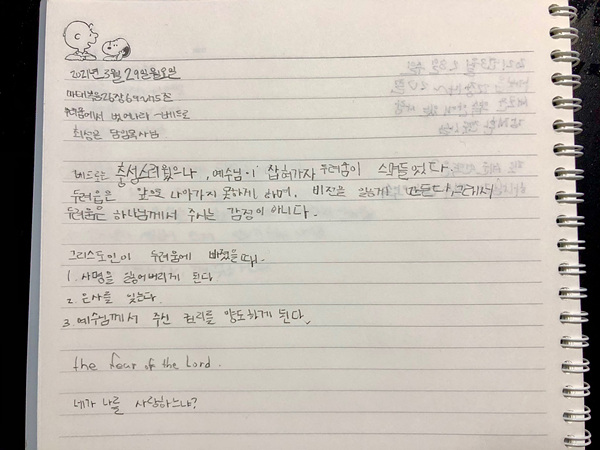 2021년 3월 29일 월요일
마태복음 26장 69~75절
두려움에서 벗어나다 - 베드로
담임목사님
베드로는 충성스러웠으나, 예수님이 잡혀가자 두려움이 스며들었다.
두려움은 앞으로 나아가지 못하게 하며, 비전을 잃게 만든다. 그래서
두려움은 하나님께서 주시는 감정이 아니다.
그리스도인이 두려움에 빠졌을 때.
1. 사명을 잃어버리게 된다.
2. 은사를 잊는다.
3. 예수님께서 주신 권리를 양도하게 된다.
the fear of the Lord.
네가 나를 사랑하느냐?